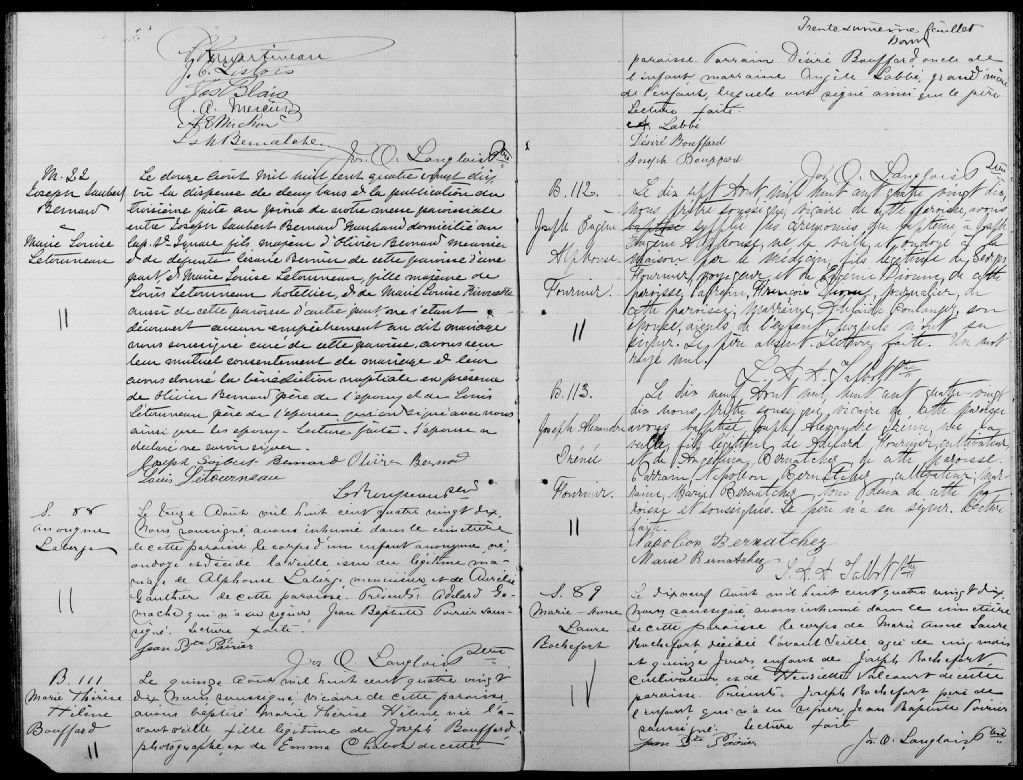 J. C. Leslois
Jos Blais
A. Mercier
A E Michon
Jos. O. Langlois Ptre
M. 22
Joseph Jaubert
Bernard
&
Marie Louise
Letourneau
Le douze Aout mil huit cent quatre vingt dix
vu la dispense de deux bans et la publication du
troisième faite au prône de notre messe paroissiale
entre Joseph Jaubert Bernard Marchand domicilié au
Cap St Ignace fils majeur d'Olivier Bernard meunier
et de défunte Césarie Bernier de cette paroisse d'une
part et Marie Louise Letourneau, fille majeure de
Louis Letourneau hotelier, & de Marie Louise
aussi de cette paroisse d'autre part ne s'étant
découvert aucun empêchement au dit mariage
nous soussigné curé de cette paroisse, avons reçu
leur mutuel consentement de mariage et leur
avons donné la bénédiction nuptiale en présence
de Olivier Bernard père de l'époux et de Louis
Letourneau père de l'épouse qui ont signé avec nous
ainsi que les époux. Lecture faite. L'épouse a
déclaré ne savoir signer.
Joseph Jaubert Bernard Olivier Bernard
Louis Letourneau
S. 88
Anonyme
Laberge
Le douze Aout mil huit cent quatre vingt dix,
Nous soussigné, avons inhumé dans le cimetière
de cette paroisse le corps d'un enfant anonyme né,
ondoyé et décédé la veille, issu du légitime ma-
riage de Alphonse Laberge menuisier, et de Aurélie
Gauthier de cette paroisse. Présents: Adelard Ga-
mache qui n'a su signer, Jean Baptiste Poirier sous-
signé. Lecture faite.
Jean Bte Poirier
Jos. O. Langlois Ptre
B. 111
Marie Thérèse
Hélène
Bouffard
Le quinze Aout mil huit cent quatre vingt
dix nous soussigné, vicaire de cette paroisse
avons baptisé Marie Thérèse Hélène née l'a-
vant veille fille légitime de Joseph Bouffard
photographe, et de Emma Chabot de cette
Trente deuxième feuillet
paroisse Parrain Désiré Bouffard oncle de
l'enfant marraine Angèle Labbé, grand'mère
de l'enfant, lesquels ont signé ainsi que le père
Lecture faite.
A. Labbé
Désiré Bouffard
Joseph Bouffard
Jos O. Langlois Ptre
B. 112.
Joseph Eugène
Alphonse
Fournier.
Le dix sept Aout mil huit cent quatre vingt dix,
nous prêtre soussigné, vicaire de cette paroisse, avons
suppléé les cérémonies du baptême à Joseph
Eugène Alphonse, né la veille et ondoyé à la
maison par le médecin, fils légitime de Georges
Fournier voyageur et de Eugénie Dionne, de cette
paroisse. Parrain, François Dionne, journalier, de
cette paroisse, Marraine, Adélaïde Boulanger, son
épouse, aieuls de l'enfant lesquels n'ont su
signer. Le père absent. Lecture faite. Un mot
rayé nul.
J. A. A. Talbot Ptre
B. 113.
Joseph Alexandre
Irénée
Fournier.
Le dix neuf Aout mil huit cent quatre-vingt
dix nous, prêtre soussigné, vicaire de cette paroisse
avons baptisé Joseph Alexandre Irénée, né la
veille, fils légitime de Adélard Fournier, cultivateur
et de Angelina Bernatchez de cette paroisse.
Parrain Napoléon Bernatchez, cultivateur, mar-
raine, Marie Bernatchez, tous deux de cette pa-
roisse et soussignés. Le père n'a su signer. Lecture
faite.
Napoléon Bernatchez
Marie Bernatchez
J. A. A. Talbot Ptre
S. 89
Marie-Anne
Laure
Rochefort
Le dix neuf Aout mil huit cent quatre vingt dix
Nous soussigné, avons inhumé dans le cimetière
de cette paroisse le corps de Marie Anne Laure
Rochefort décédée l'avant veille agée de cinq mois
et quinze jours enfant de Joseph Rochefort
Cultivateur, et de Henriette Valcourt de cette
paroisse. Présents: Joseph Rochefort père de
l'enfant qui n'a su signer Jean Baptiste Poirier
soussigné. Lecture faite
Jean Bte Poirier
Jos. O. Langlois, Ptre